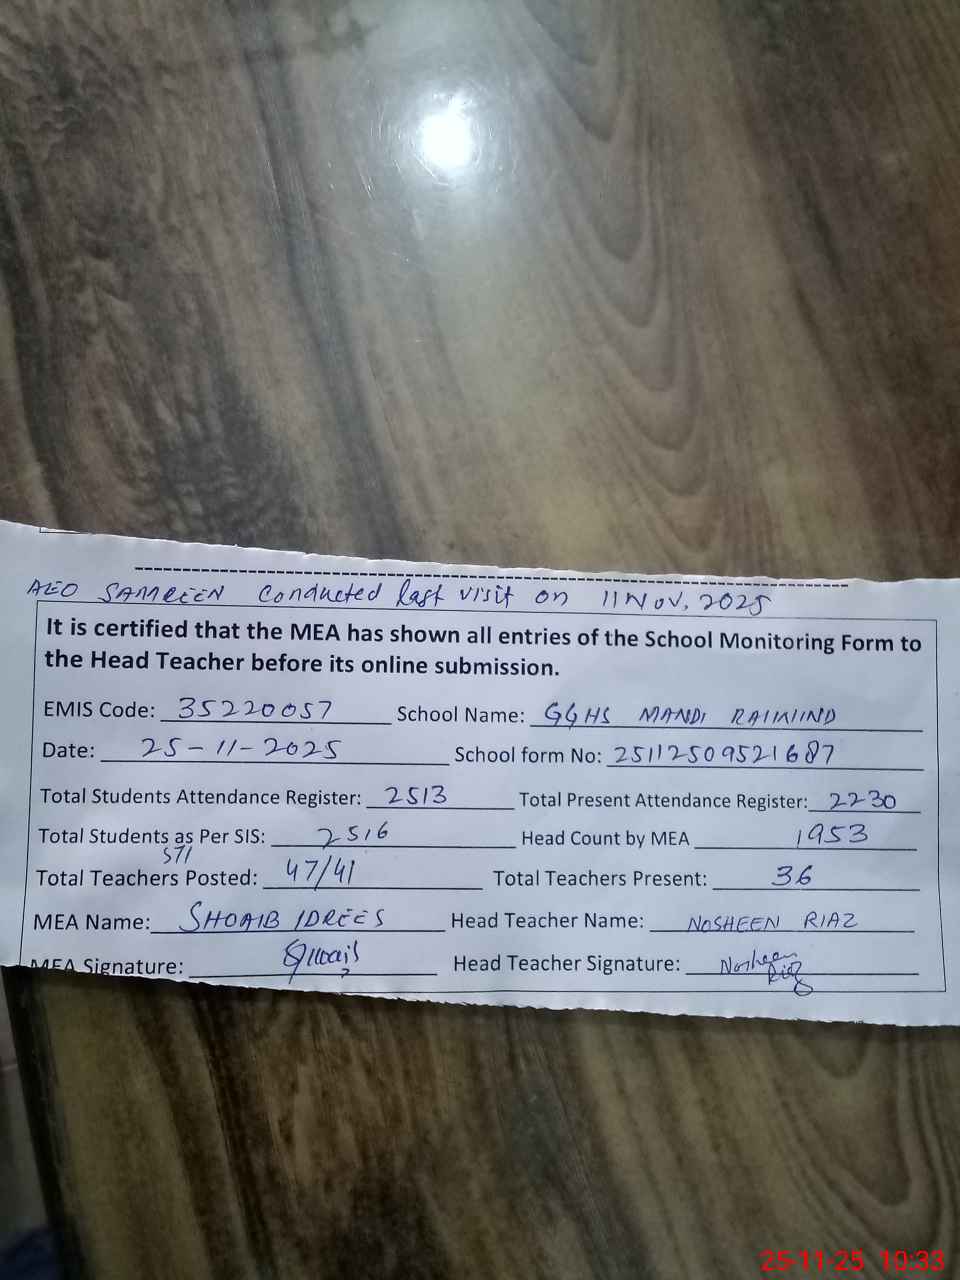 AEO SAMREEN Conducted last visit on 11 Nov, 2025
It is certified that the MEA has shown all entries of the School Monitoring Form to
the Head Teacher before its online submission.
EMIS Code: 35220057 School Name: GGHS MANDI RAIWIND
Date: 25-11-2025 School form No: 25112509521687
Total Students Attendance Register: 2513 Total Present Attendance Register: 2230
Total Students as Per SIS: 2516 Head Count by MEA 1953
STI
Total Teachers Posted: 47/41 Total Teachers Present: 36
MEA Name: SHOAIB IDREES Head Teacher Name: NOSHEEN RIAZ
MEA Signature: Head Teacher Signature: Nosheen Riaz
25-11-25 10:33